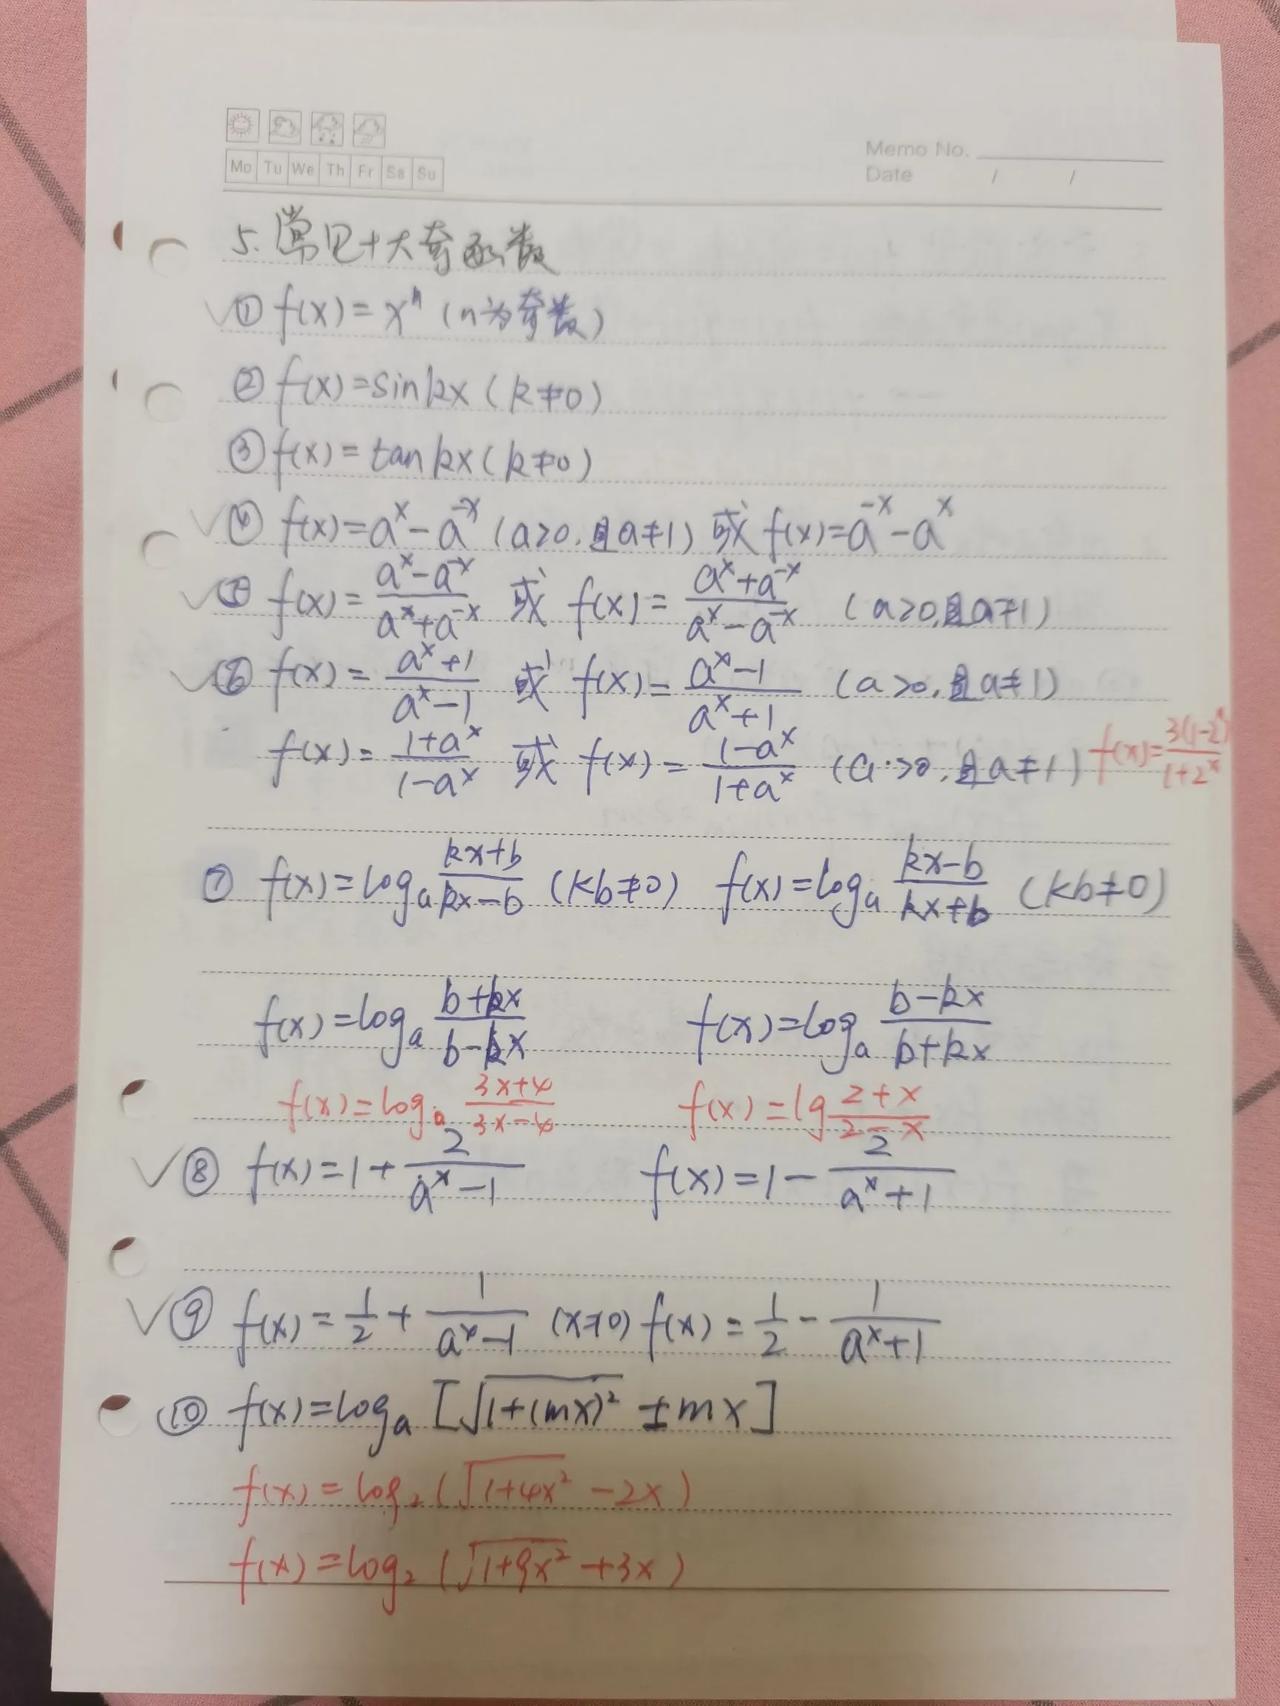 Memo No.
Mo Tu We Th Fr Sa Su
Date / /
5. 常见十大奇函数
① f(x)=xⁿ (n为奇数)
② f(x)=sinkx (k≠0)
③ f(x)=tankx (k≠0)
④ f(x)=a^x-a^-x (a>0,且a≠1) 或 f(x)=a^-x-a^x
⑤ f(x)=(a^x-a^-x)/(a^x+a^-x) 或 f(x)=(a^x+a^-x)/(a^x-a^-x) (a>0,且a≠1)
⑥ f(x)=(a^x+1)/(a^x-1) 或 f(x)=(a^x-1)/(a^x+1) (a>0,且a≠1)
f(x)=(1+a^x)/(1-a^x) 或 f(x)=(1-a^x)/(1+a^x) (a>0,且a≠1) f(x)=3(1-2^x)/(1+2^x)
⑦ f(x)=log_a (kx+b)/(kx-b) (kb≠0) f(x)=log_a (kx-b)/(kx+b) (kb≠0)
f(x)=log_a (b+kx)/(b-kx) f(x)=log_a (b-kx)/(b+kx)
f(x)=log_a (3x+4)/(3x-4) f(x)=lg (2+x)/(2-x)
⑧ f(x)=1+2/(a^x-1) f(x)=1-2/(a^x+1)
⑨ f(x)=1/2+1/(a^x-1) (x≠0) f(x)=1/2-1/(a^x+1)
⑩ f(x)=log_a [√(1+(mx)²) ±mx]
f(x)=log₂(√(1+4x²) -2x)
f(x)=log₂(√(1+9x²) +3x)